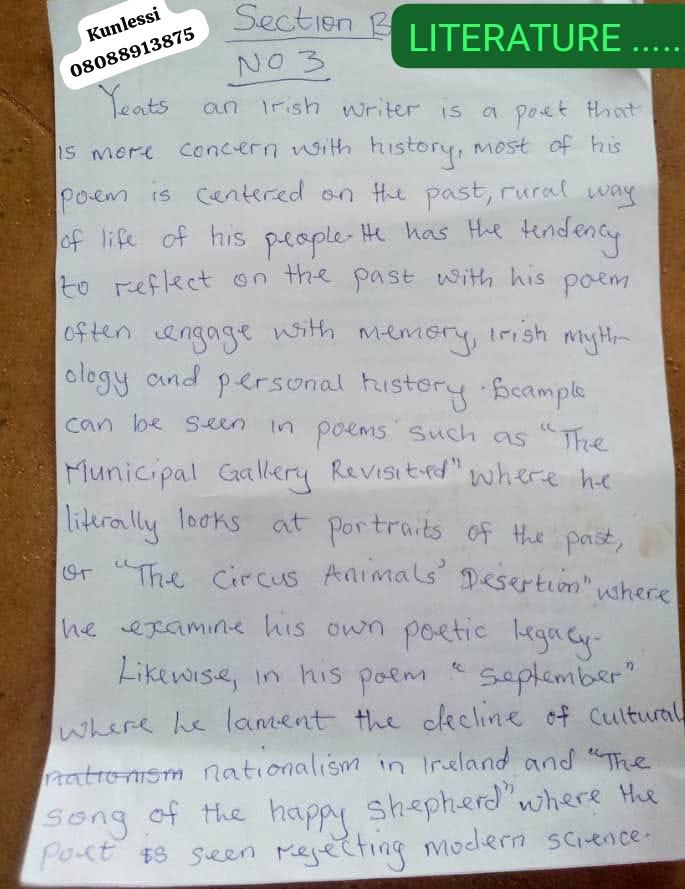 Kunlessi
08088913875
LITERATURE ......
Section B
NO 3
Yeats an Irish writer is a poet that
is more concern with history, most of his
poem is centered on the past, rural way
of life of his people. He has the tendency
to reflect on the past with his poem
often engage with memory, Irish myth-
ology and personal history. Example
can be seen in poems such as "The
Municipal Gallery Revisited" where he
literally looks at portraits of the past,
or "The Circus Animals' Desertion" where
he examine his own poetic legacy.
Likewise, in his poem "September"
where he lament the decline of cultural
nationism nationalism in Ireland and "The
song of the happy shepherd" where the
poet is seen rejecting modern science.